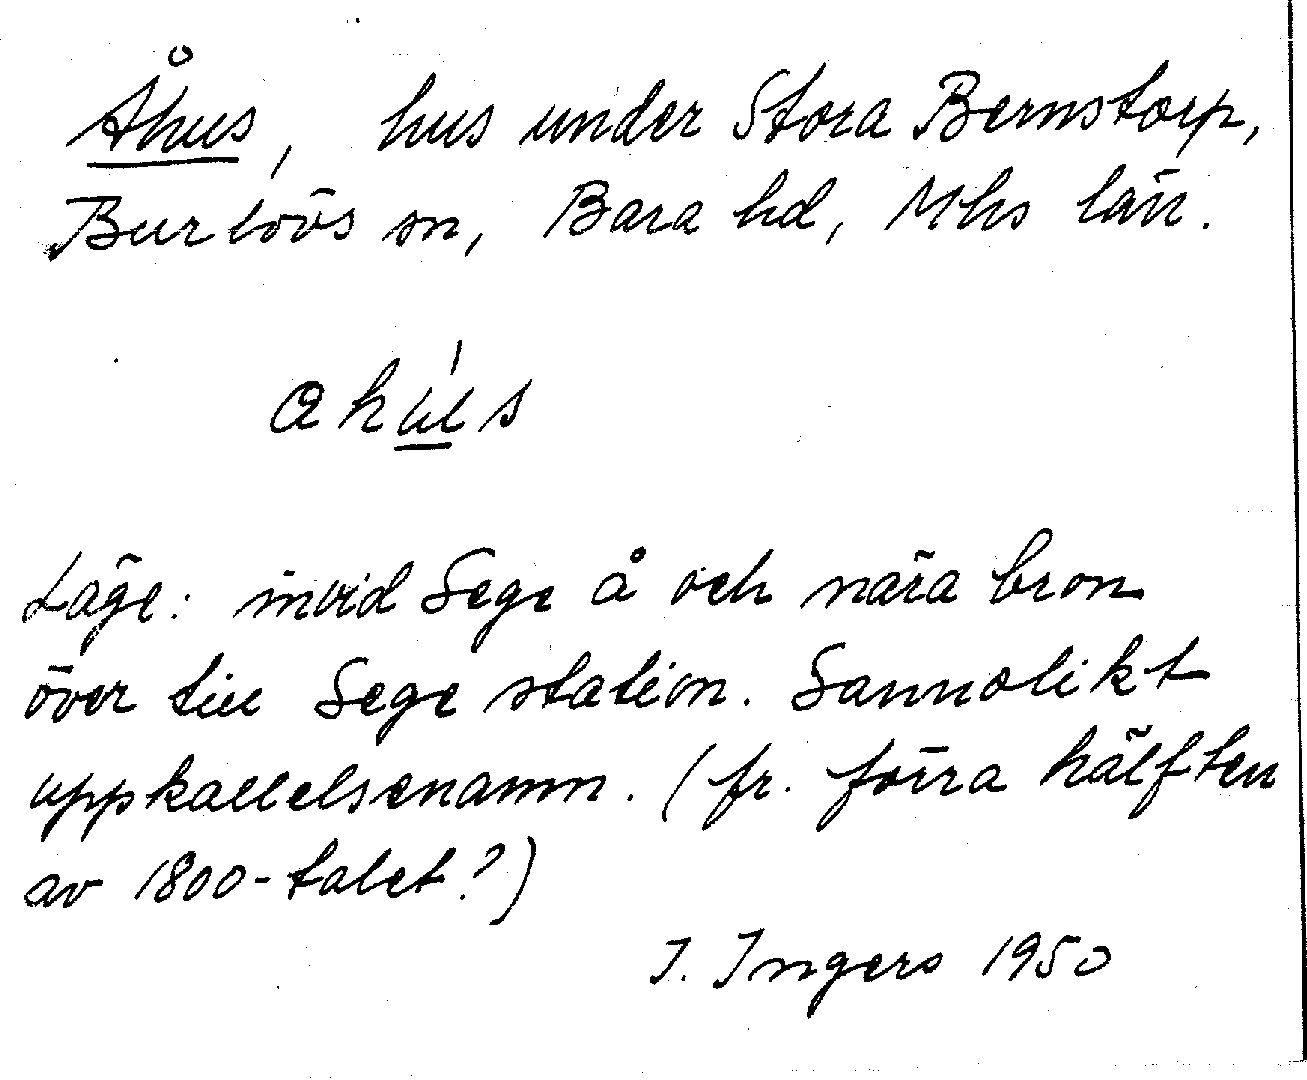 Åhus, hus under Stora Bernstorp,
Burlövs sn, Bara hd, Mhs län.
ahús
Läge: invid Sege å och nära bron
över till Sege station. Sannolikt
uppkallelsenamn. (fr. förra hälften
av 1800-talet?)
I. Ingers 1950